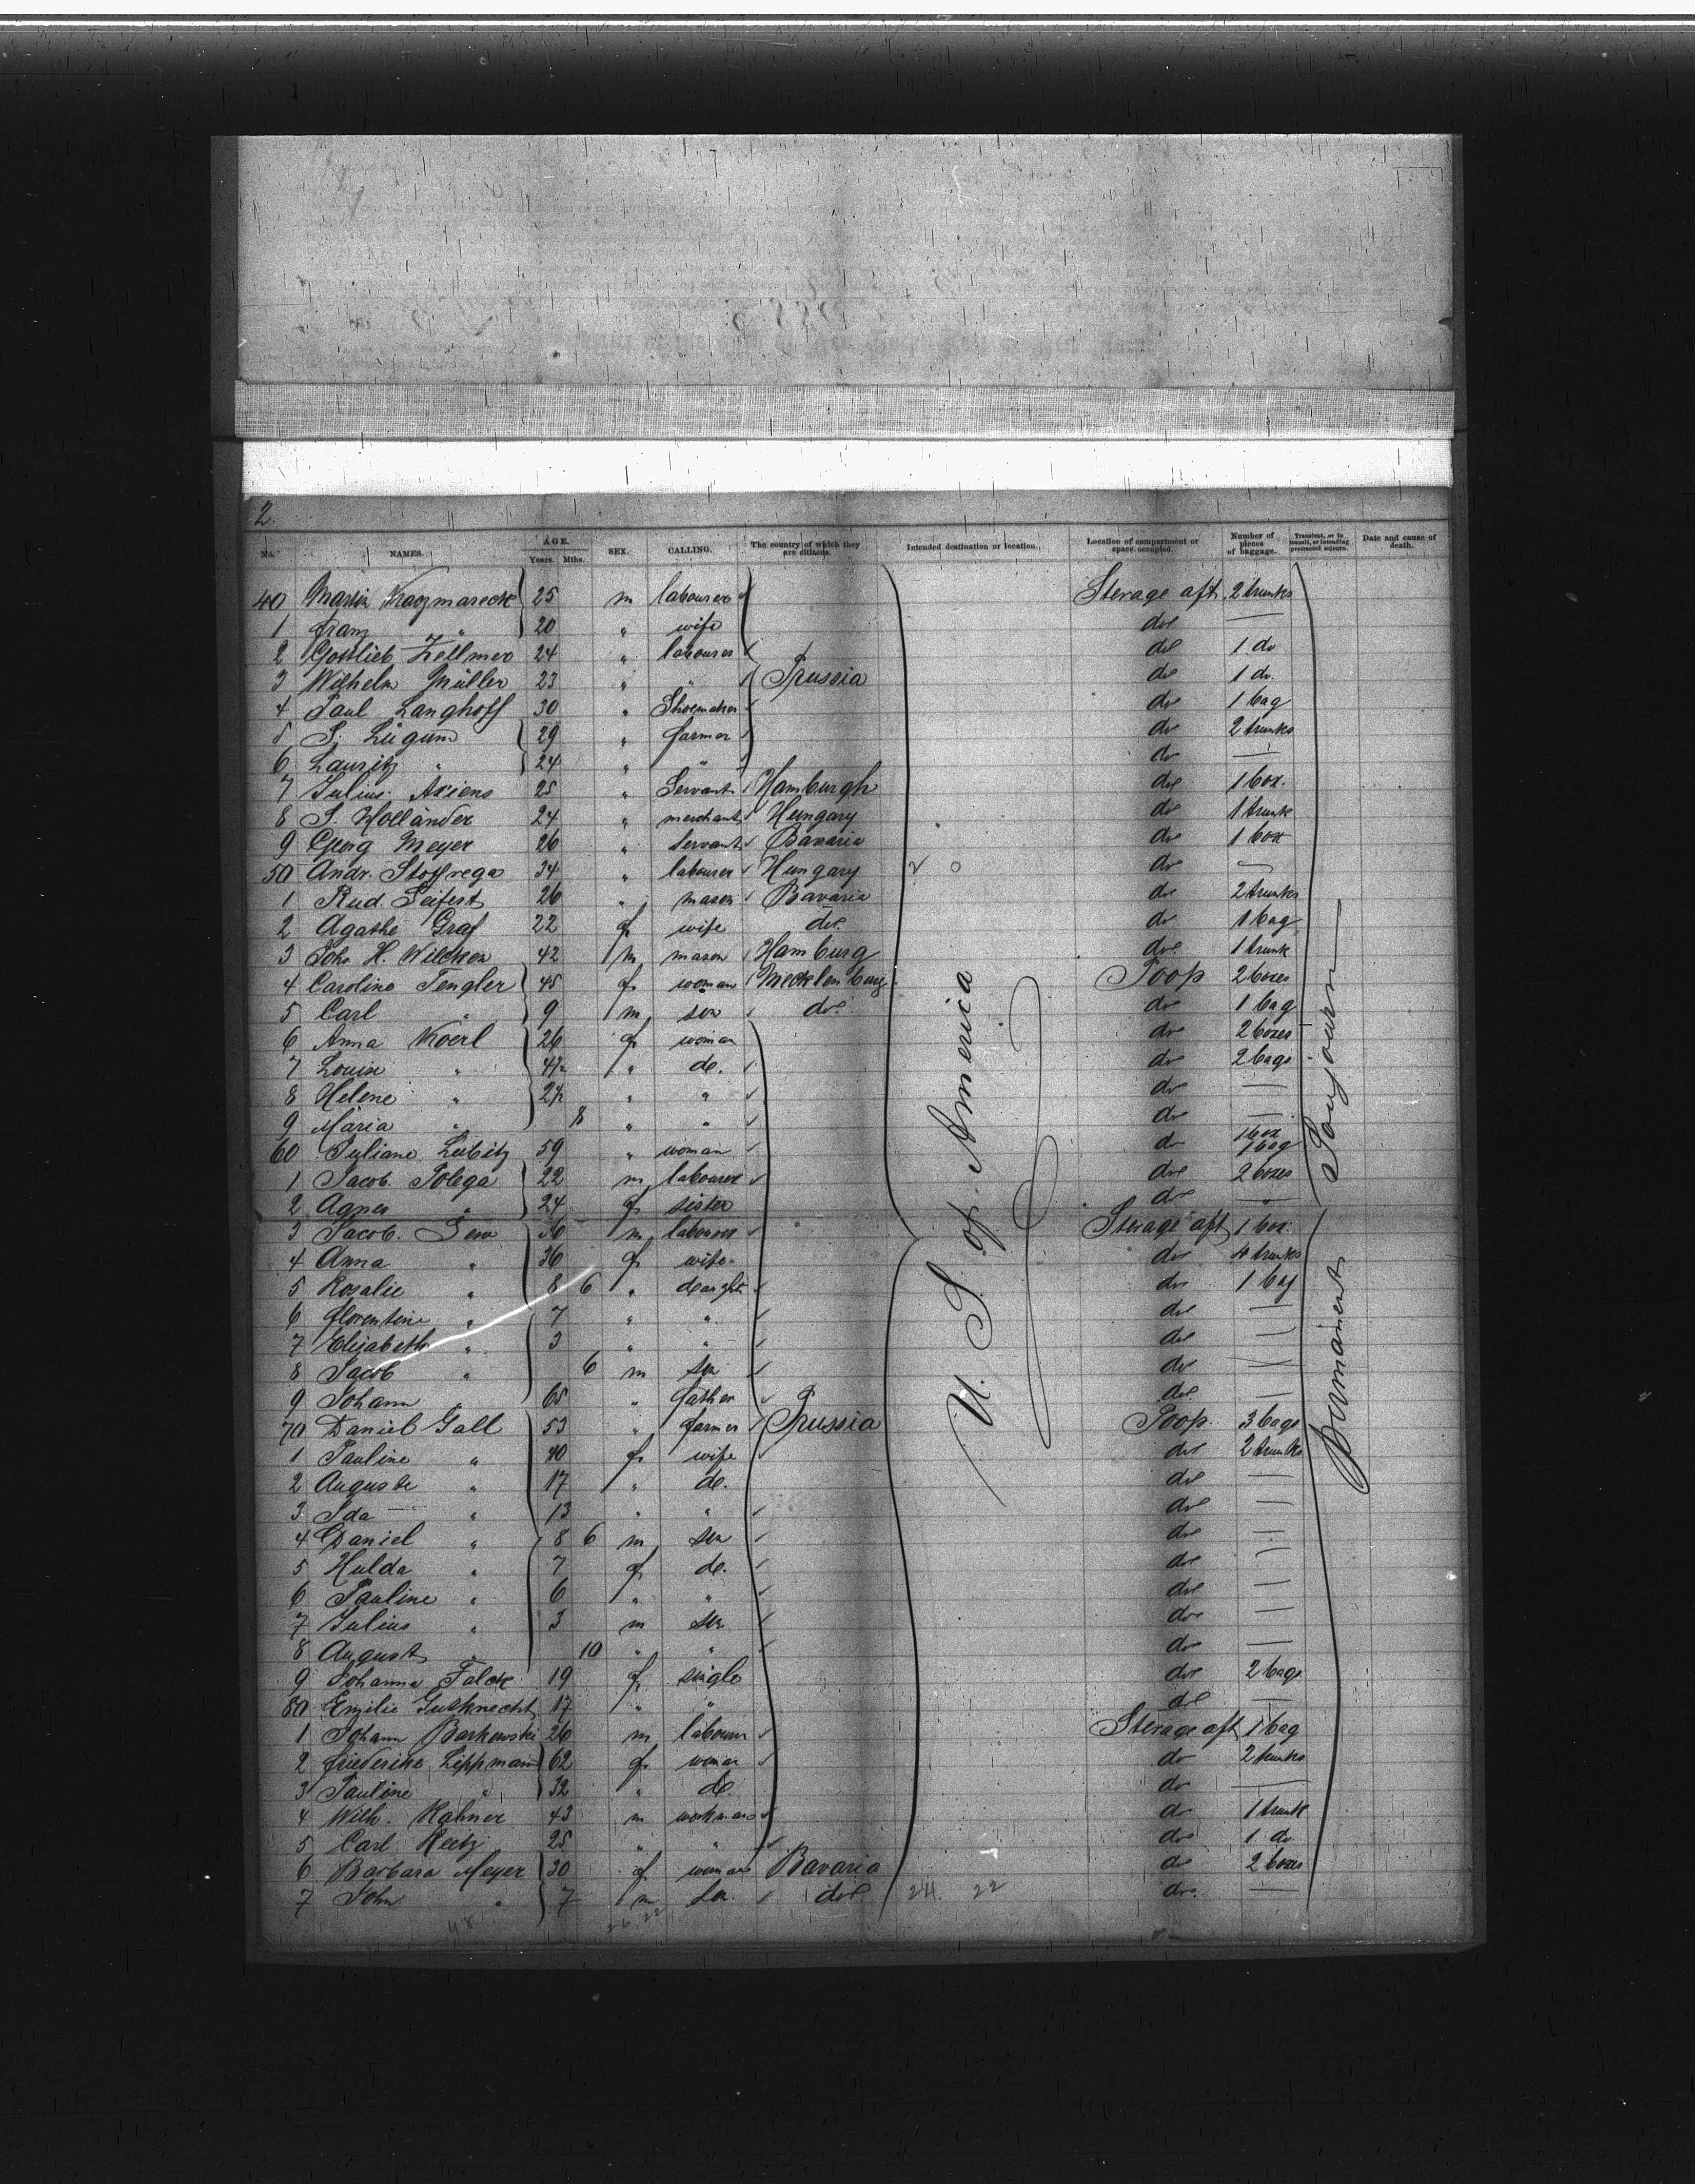 2.
No. NAMES. AGE. Years. Mths. SEX. CALLING. The country of which they are citizens. Intended destination or location. Location of compartment or space occupied. Number of pieces of baggage. Transient, or in transit, or intending protracted sojourn. Date and cause of death.
40 Martin Kaczmareck 25 m labourer Sterage aft. 2 trunks
1 Franz " 20 " wife do —
2 Gottlieb Zellmer 24 " labourer do 1 do
3 Wilhelm Müller 23 " " Prussia do 1 do.
4 Paul Langhoff 30 " Shoemaker do 1 bag
5 P. Lügum 29 " farmer do 2 trunks
6 Lauritz " 24 " " do —
7 Julius Axiens 25 " Servant Hamburgh do 1 box.
8 S. Holländer 24 " merchant Hungary do 1 trunk
9 Georg Meyer 26 " Servant Bavaria do 1 box
50 Andr. Stoffrega 34 " labourer Hungary do —
1 Rud Seifert 26 " mason Bavaria do 2 trunks
2 Agathe Graf 22 f wife do. do 1 bag
3 Joh. H. Wilcken 42 m mason Hamburg do 1 trunk
4 Caroline Tengler 45 f woman Mecklenburg Poop 2 boxes
5 Carl " 9 m son do. do 1 bag
6 Anna Koerl 26 f woman do 2 boxes
7 Louise " 4½ " do. do 2 bags
8 Helene " 2½ " " do —
9 Maria " 8 " " do —
60 Juliane Leibitz 59 " woman do 1 box 1 bag
1 Jacob. Polega 22 m labourer do 2 boxes
2 Agnes " 24 f sister do —
3 Jacob. 36 m labourer Sterage aft 1 box.
4 Anna " 36 f wife do 4 trunks
5 Rosalie " 8 6 " daught do 1 bag
6 Florentine " 7 " " do —
7 Elisabeth " 3 " " do —
8 Jacob " 6 m son do —
9 Johann " 65 " father do —
70 Daniel Gall 53 " farmer Prussia Poop. 3 bags
1 Pauline " 40 f wife do 2 trunks
2 Auguste " 17 " do. do —
3 Ida " 13 " " do —
4 Daniel " 8 6 m son do —
5 Hulda " 7 f do. do —
6 Pauline " 6 " " do —
7 Julius " 3 m son do —
8 August " 10 " " do —
9 Johanna Falck 19 f single do 2 bags
80 Emilie Gutknecht 17 " " do —
1 Johann Barkowski 26 m labourer Sterage aft 1 bag
2 Friederike Lippmann 62 f woman do 2 trunks
3 Pauline " 32 " do. do —
4 Wilh. Hahner 43 m workman do 1 trunk
5 Carl Reetz 25 " " do 1 do
6 Barbara Meyer 30 f woman Bavaria do 2 boxes
7 John " 7 m Son. do. 24. 22 do. —
48 26 22
U. S. of America
Soujourn
permanent